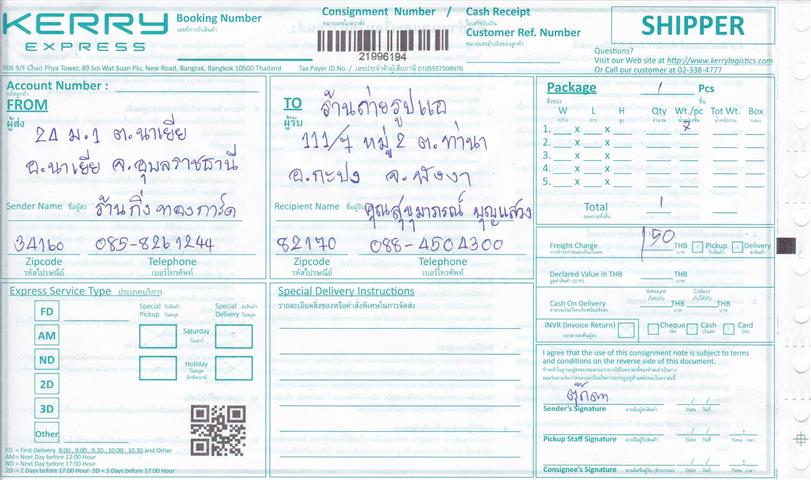 KERRY
EXPRESS
Booking Number
เลขที่การรับสินค้า
Consignment Number /
หมายเลขใบตราส่ง
21996194
Cash Receipt
ใบเสร็จรับเงิน
Customer Ref. Number
หมายเลขอ้างอิงของลูกค้า
SHIPPER
Questions?
Visit our Web site at http://www.kerrylogistics.com
Or Call our customer at 02-338-4777
906 9/F Chao Phya Tower, 89 Soi Wat Suan Plu, New Road, Bangrak, Bangkok 10500 Thailand
Tax Payer ID.No. / เลขประจำตัวผู้เสียภาษี 0105557008976
Account Number :
FROM
ผู้ส่ง
24 ม.1 ต.นาเยีย
อ.นาเยีย จ.อุบลราชธานี
Sender Name ชื่อผู้ส่ง ร้านกิ่งทองการ์ด
34160 085-8261244
Zipcode Telephone
รหัสไปรษณีย์ เบอร์โทรศัพท์
TO
ผู้รับ
ร้านถ่ายรูปแอ
111/7 หมู่ 2 ต.ท่านา
อ.กะปง จ.พังงา
Recipient Name ชื่อผู้รับ คุณสุขุมาภรณ์ บุญแสวง
82170 088-4504300
Zipcode Telephone
รหัสไปรษณีย์ เบอร์โทรศัพท์
Package 1 Pcs
สิ่งของ ชิ้น
W L H Qty Wt./pc Tot Wt. Box
กว้าง ยาว สูง จำนวน
1. x x 7
2. x x
3. x x
4. x x
5. x x
Total 1
Freight Charge 150 THB Pickup Delivery
Declared Value in THB
Amount Collect
Cash On Delivery THB THB
INVR (Invoice Return) Cheque Cash Card
Express Service Type ประเภทบริการ
FD
AM
ND
2D
3D
Other
Special Pickup
Special Delivery
Saturday
วันเสาร์
Holiday
วันหยุด
นักขัตฤกษ์
FD = First Delivery 8.00 , 9.00 , 9.30 , 10.00 , 10.30 and Other
AM= Next Day before 12:00 Hour
ND = Next Day before 17:00 Hour
2D = 2 Days before 17:00 Hour 3D = 3 Days before 17:00 Hour
Special Delivery Instructions
รายละเอียดหลังของหรือคำสั่งพิเศษในการจัดส่ง
I agree that the use of this consignment note is subject to terms
and conditions on the reverse side of this document.
ตุ๊กตา
Sender's Signature ลายมือชื่อผู้ส่งสินค้า Date วันที่
Pickup Staff Signature ลายมือชื่อผู้รับสินค้า Date วันที่ Time เวลา
Consignee's Signature Date วันที่ Time เวลา